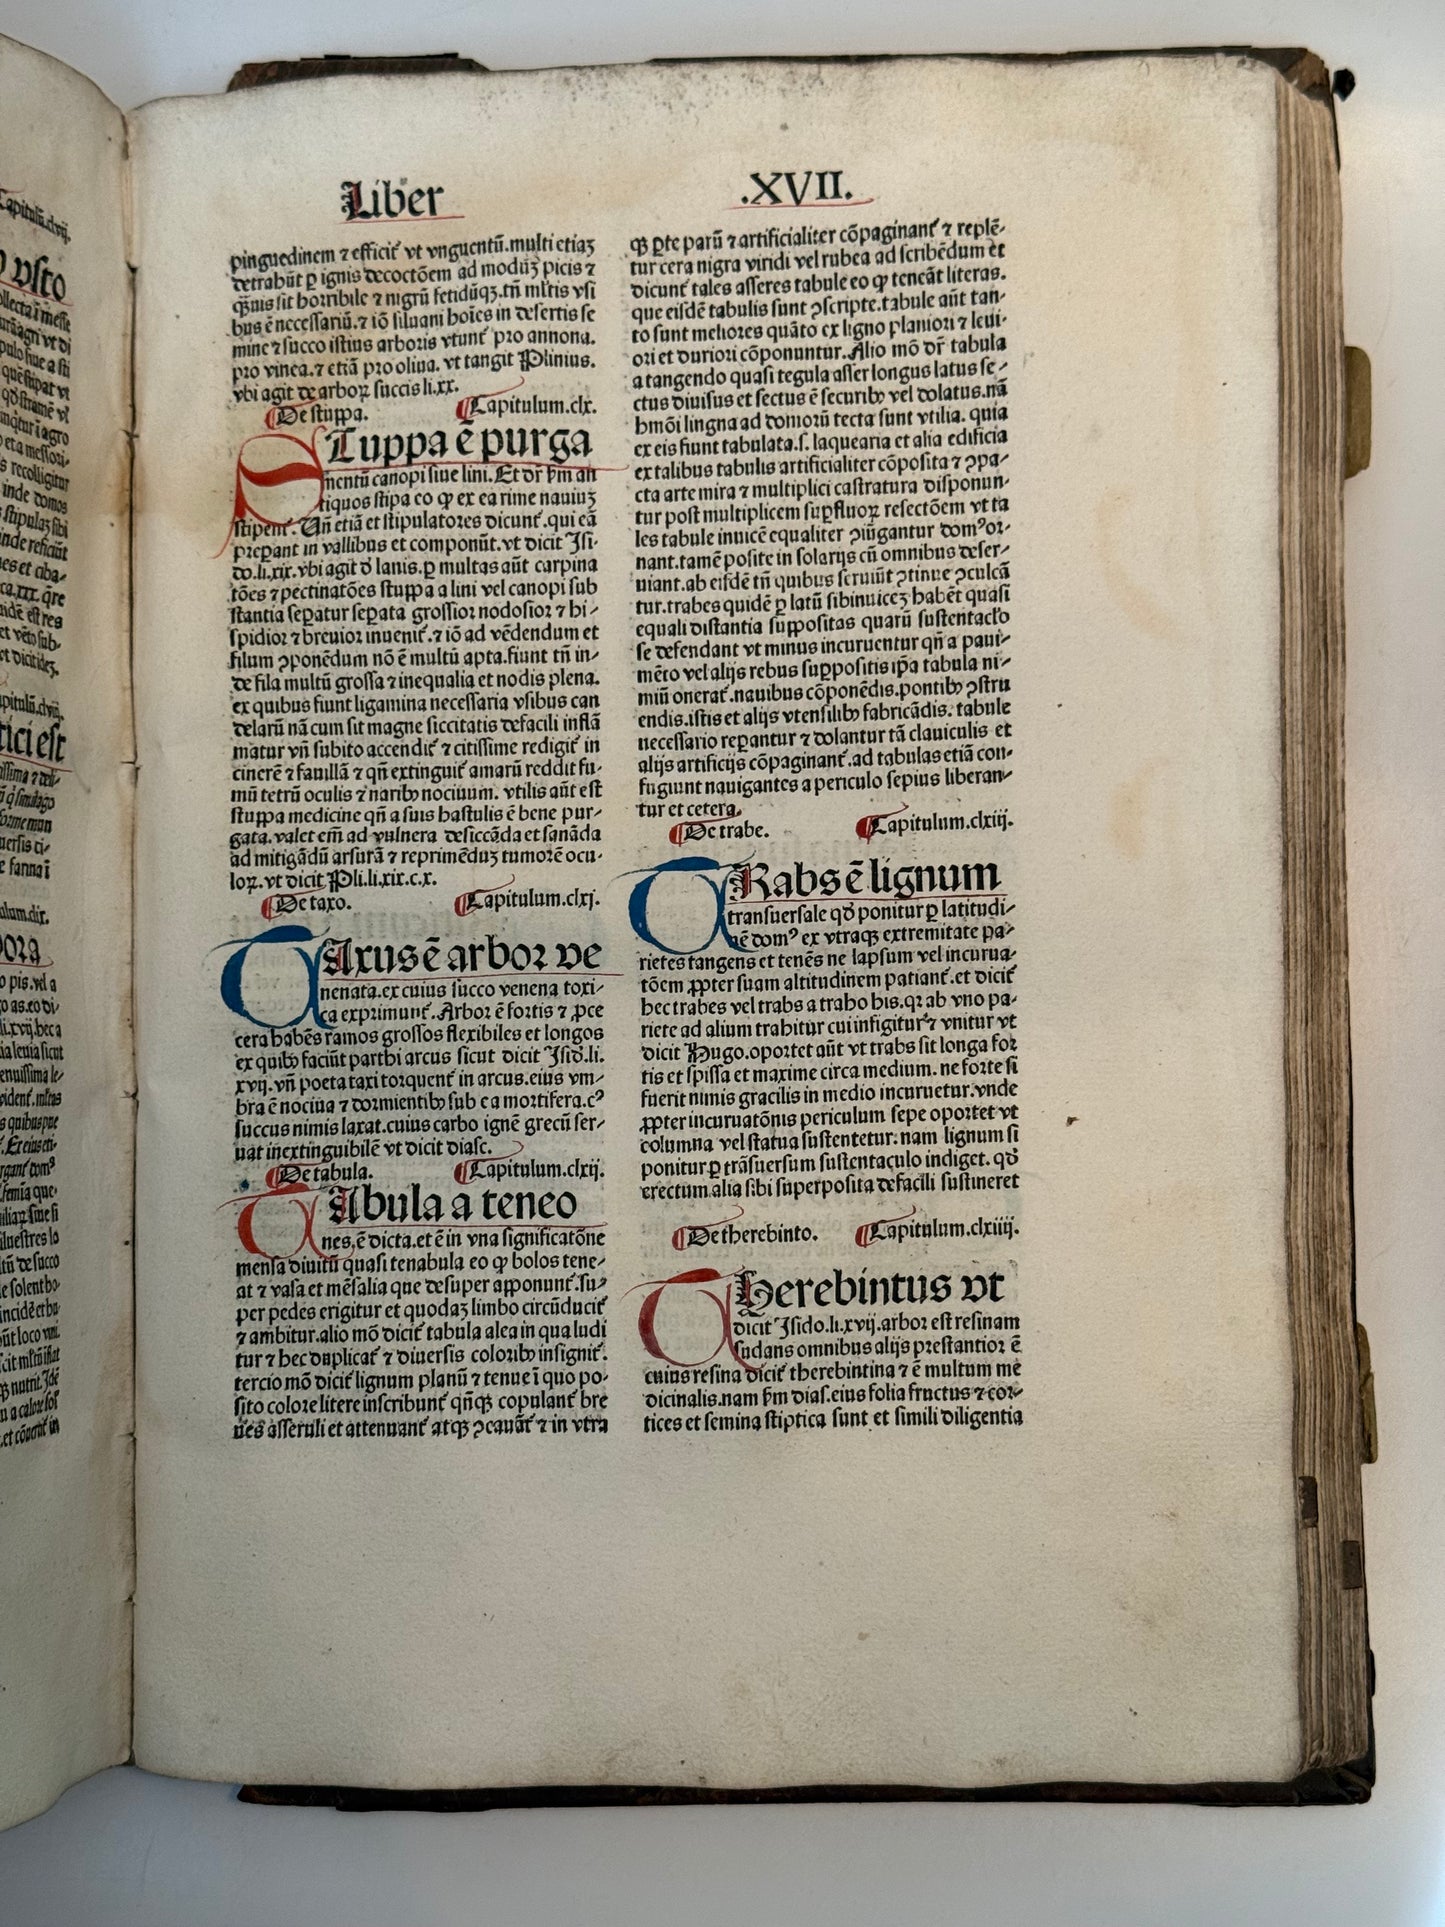 Liber .XVII.
pinguedinem ⁊ efficit᷑ vt vnguentū.multi etiaꝫ
detrahūt ꝑ ignis decoctōem ad moduꝫ picis ⁊
q̄ꝫuis sit horribile ⁊ nigrū fetidūqꝫ.tn̄ ml̓tis vsi
bus ē necessariū.⁊ iō siluani hoīes in desertis se
mine ⁊ succo istius arboris vtunt᷑ pro annona.
pro vinea.⁊ etiā pro oliua. vt tangit Plinius.
vbi agit de arboꝝ succis li.xx.
¶De stuppa. ¶Capitulum.clx.
STuppa ē purga
mentū canopi siue lini.Et dr̄ ẜm an
tiquos stipa eo ꝙ ex ea rime nauiuꝫ
stipent᷑. Vn̄ etiā et stipulatores dicunt᷑.qui eā
prep̱ant in vallibus et componūt.vt dicit Isi-
do.li.xix.vbi agit đ lanis.ꝑ multas aūt carpina
tōes ⁊ pectinatōes stuppa a lini vel canopi sub
stantia sep̱atur sep̱ata grossior nodosior ⁊ hi-
spidior ⁊ breuior inuenit᷑.⁊ iō ad vēdendum et
filum ꝯponēdum nō ē multū apta.fiunt tn̄ in-
de fila multū grossa ⁊ inequalia et nodis plena.
ex quibus fiunt ligamina necessaria vsibus can
delarū nā cum sit magne siccitatis defacili inflā
matur vn̄ subito accendit᷑ ⁊ citissime redigit᷑ in
cinerē ⁊ fauillā ⁊ qn̄ extinguit᷑ amarū reddit fu-
mū tetrū oculis ⁊ naribꝫ nociuum. vtilis aūt est
stuppa medicine qn̄ a suis hastulis ē bene pur-
gata. valet em̄ ad vulnera desiccāda et sanāda
ad mitigādū arsurā ⁊ reprimēduꝫ tumorē ocu-
loꝝ.vt dicit Pli.li.xix.c.x.
¶De taxo. ¶Capitulum.clxj.
TAxus ē arbor ve
nenata.ex cuius succo venena toxi-
ca exprimunt᷑.Arbor ē fortis ⁊ ꝓce
cera habēs ramos grossos flexibiles et longos
ex quibꝫ faciūt parthi arcus sicut dicit Isiđ.li.
xvij.vn̄ poeta taxi torquent᷑ in arcus.eius vm-
bra ē nociua ⁊ dormientibꝫ sub ea mortifera.cꝰ
succus nimis laxat.cuius carbo ignē grecū ser-
uat inextinguibilē vt dicit diasc.
¶De tabula. ¶Capitulum.clxij.
TAbula a teneo
nes,ē dicta.et ē in vna significatōne
mensa diuitū quasi tenabula eo ꝙ bolos tene-
at ⁊ vasa et mēsalia que desuper apponunt᷑.su-
per pedes erigitur et quodaꝫ limbo circūducit᷑
⁊ ambitur.alio mō dicit᷑ tabula alea in qua ludi
tur ⁊ hec duplicat᷑ ⁊ diuersis coloribꝫ insignit᷑.
tercio mō dicit᷑ lignum planū ⁊ tenue ī quo po-
sito colore litere inscribunt᷑ qn̄qꝫ copulant᷑ bre
ues asseruli et attenuant᷑ atqꝫ ꝯcauāt᷑ ⁊ in vtra
qꝫ ꝑte parū ⁊ artificialiter cōpaginant᷑ ⁊ replē-
tur cera nigra viridi vel rubea ad scribēdum et
dicunt᷑ tales asseres tabule eo ꝙ teneāt literas.
que eisdē tabulis sunt ꝯscripte.tabule aūt tan-
to sunt meliores quāto ex ligno planiori ⁊ leui-
ori et duriori cōponuntur.Alio mō dr̄ tabula
a tangendo quasi tegula asser longus latus se-
ctus diuisus et sectus ē securibꝫ vel dolatus.nā
hmōi lingna ad domorū tecta sunt vtilia. quia
ex eis fiunt tabulata.s. laquearia et alia edificia
ex talibus tabulis artificialiter cōposita ⁊ ꝯpa-
cta arte mira ⁊ multiplici castratura disponun-
tur post multiplicem suꝑfluoꝝ resectōem vt ta
les tabule inuicē equaliter ꝯiūgantur domꝰ or-
nant.tamē posite in solarijs cū omnibus deser-
uiant.ab eisdē tn̄ quibus seruiūt ꝯtinue ꝯculcā
tur.trabes quidē ꝑ latū sibinuiceꝫ habēt quasi
equali distantia suppositas quarū sustentac̄lo
se defendant vt minus incuruentur qn̄ a paui-
mēto vel alijs rebus suꝑpositis ip̄a tabula ni-
miū onerat᷑.nauibus cōponēdis.pontibꝫ ꝯstru
endis.istis et alijs vtensilibꝫ fabricādis. tabule
necessario reꝑantur ⁊ dolantur tā clauiculis et
alijs artificijs cōpaginant᷑.ad tabulas etiā con-
fugiunt nauigantes a periculo sepius liberan-
tur et cetera.
¶De trabe. ¶Capitulum.clxiij.
TRabs ē lignum
transuersale qđ ponitur ꝑ latitudi-
nē domꝰ ex vtraqꝫ extremitate pa-
rietes tangens et tenēs ne lapsum vel incurua-
tōem ꝓpter suam altitudinem patiant᷑.et dicit᷑
hec trabes vel trabs a traho his.qꝛ ab vno pa-
riete ad alium trahitur cui infigitur ⁊ vnitur vt
dicit Hugo.oportet aūt vt trabs sit longa for
tis et spissa et maxime circa medium. ne forte si
fuerit nimis gracilis in medio incuruetur.vnde
ꝓpter incuruatōnis periculum sepe oportet vt
columna vel statua sustentetur: nam lignum si
ponitur ꝑ trāsuersum sustentaculo indiget. qđ
erectum alia sibi superposita defacili sustineret
¶De therebinto. ¶Capitulum.clxiiij.
THerebintus vt
dicit Isido.li.xvij.arbor est resinam
sudans omnibus alijs prestantior ē
cuius resina dicit᷑ therebintina ⁊ ē multum me
dicinalis.nam ẜm dias.eius folia fructus ⁊ cor-
tices et semina stiptica sunt et simili diligentia